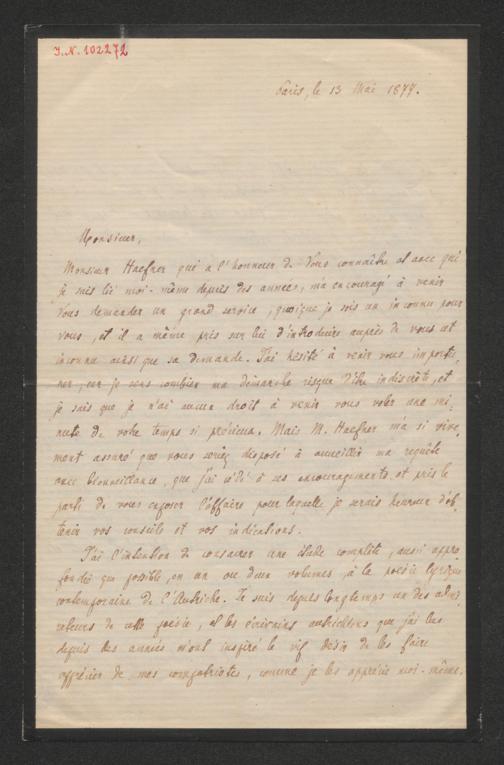 I.N. 102272
Paris, le 13 Mai 1877.
Monsieur,
Monsieur Haefner qui a l'honneur de vous connaître et avec qui
je suis lié moi-même depuis des années, m'a encouragé à venir
vous demander un grand service, quoique je sois un inconnu pour
vous, et il a même pris sur lui d'introduire auprès de vous cet
inconnu ainsi que sa demande. J'ai hésité à venir vous importu-
ner, car je sens combien ma démarche risque d'être indiscrète, et
je sais que je n'ai aucun droit à venir vous voler une mi-
nute de votre temps si précieux. Mais M. Haefner m'a si vive-
ment assuré que vous seriez disposé à accueillir ma requête
avec bienveillance, que j'ai cédé à ses encouragements et pris le
parti de vous exposer l'affaire pour laquelle je serais heureux d'ob-
tenir vos conseils et vos indications.
J'ai l'intention de consacrer une étude complète, aussi appro-
fondie que possible, en un ou deux volumes, à la poésie lyrique
contemporaine de l'Autriche. Je suis depuis longtemps un des admi-
rateurs de cette poésie, et les écrivains autrichiens que j'ai lus
depuis des années m'ont inspiré le vif désir de les faire
apprécier de mes compatriotes, comme je les apprécie moi-même.